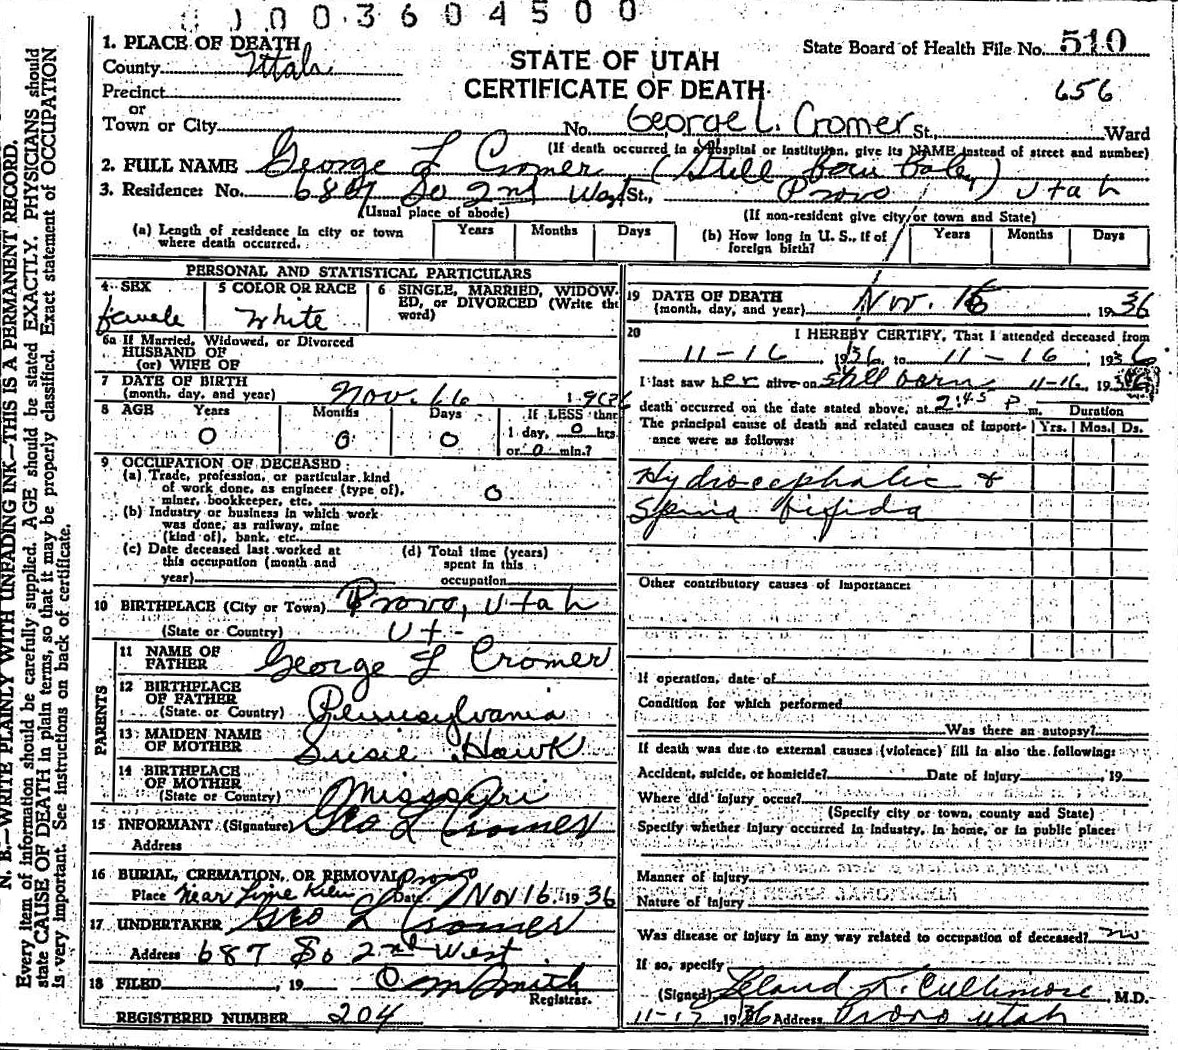 1003604500
N. B.—WRITE PLAINLY WITH UNFADING INK—THIS IS A PERMANENT RECORD.
Every item of information should be carefully supplied. AGE should be stated EXACTLY. PHYSICIANS should
state CAUSE OF DEATH in plain terms, so that it may be properly classified. Exact statement of OCCUPATION
is very important. See instructions on back of certificate.
1. PLACE OF DEATH
County Utah
Precinct
or
Town or City
STATE OF UTAH
CERTIFICATE OF DEATH
State Board of Health File No. 510
656
No. George L. Cromer St., Ward
(If death occurred in a hospital or institution, give its NAME instead of street and number)
2. FULL NAME George L Cromer (Still born Baby)
3. Residence: No. 687 So 2nd West St., Provo, Utah
(Usual place of abode) (If non-resident give city or town and State)
(a) Length of residence in city or town where death occurred. Years Months Days
(b) How long in U. S., if of foreign birth? Years Months Days
PERSONAL AND STATISTICAL PARTICULARS
4 SEX female
5 COLOR OR RACE White
6 SINGLE, MARRIED, WIDOWED, or DIVORCED (Write the word)
6a If Married, Widowed, or Divorced
HUSBAND OF
(or) WIFE OF
7 DATE OF BIRTH
(month, day, and year) Nov. 16 1936
8 AGE Years Months Days If LESS than
0 0 0 1 day, 0 hrs.
or 0 min.?
9 OCCUPATION OF DECEASED
(a) Trade, profession, or particular kind
of work done, as engineer (type of),
miner, bookkeeper, etc. 0
(b) Industry or business in which work
was done, as railway, mine
(kind of), bank, etc.
(c) Date deceased last worked at
this occupation (month and
year)
(d) Total time (years)
spent in this
occupation
10 BIRTHPLACE (City or Town) Provo, Utah
(State or Country) Ut-
PARENTS
11 NAME OF
FATHER George L Cromer
12 BIRTHPLACE
OF FATHER
(State or Country) Pennsylvania
13 MAIDEN NAME
OF MOTHER Susie Hawk
14 BIRTHPLACE
OF MOTHER
(State or Country) Missouri
15 INFORMANT (Signature) Geo L Cromer
Address
16 BURIAL, CREMATION, OR REMOVAL Provo
Place Near Lime Kiln Date Nov 16 1936
17 UNDERTAKER Geo L Cromer
Address 687 So 2nd West
18 FILED , 19 O m Smith
Registrar.
REGISTERED NUMBER 204
19 DATE OF DEATH
(month, day, and year) Nov. 16 , 1936
20 I HEREBY CERTIFY, That I attended deceased from
11-16 1936 to 11-16 1936
I last saw her alive on still born 11-16, 1936
death occurred on the date stated above, at 2:45 P m.
The principal cause of death and related causes of importance were as follows:
Duration
Yrs. Mos. Ds.
Hydrocephalic &
Spina bifida
Other contributory causes of importance:
If operation, date of
Condition for which performed
Was there an autopsy?
If death was due to external causes (violence) fill in also the following:
Accident, suicide, or homicide? Date of injury , 19
Where did injury occur?
(Specify city or town, county and State)
Specify whether injury occurred in industry, in home, or in public place:
Manner of injury
Nature of injury
Was disease or injury in any way related to occupation of deceased? no
If so, specify
(Signed) Leland K. Cullimore, M.D.
11-17 1936 Address Provo Utah